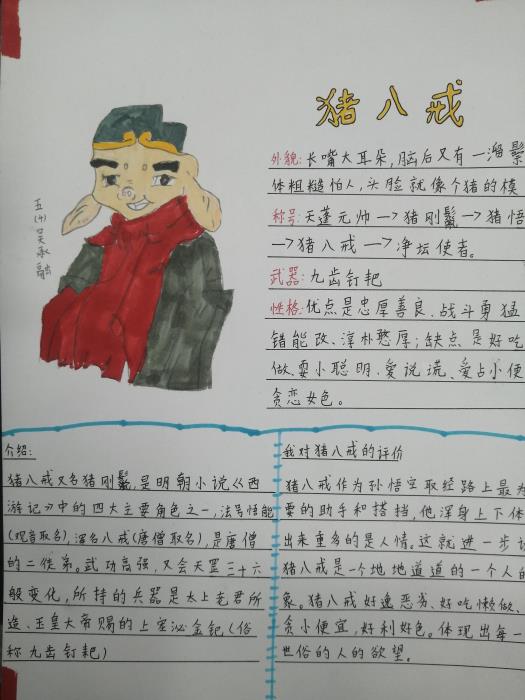 猪八戒
外貌:长嘴大耳朵,脑后又有一溜鬃
体粗糙怕人,头脸就像个猪的模
称号:天蓬元帅→猪刚鬣→猪悟
→猪八戒→净坛使者。
武器:九齿钉耙
性格:优点是忠厚善良、战斗勇猛
错能改、淳朴憨厚;缺点是好吃
做、耍小聪明、爱说谎、爱占小便
贪恋女色。
五(4)吴承融
介绍:
猪八戒又名猪刚鬣,是明朝小说《西
游记》中的四大主要角色之一,法号悟能
(观音取名),浑名八戒(唐僧取名),是唐僧
的二徒弟。武功高强,又会天罡三十六
般变化,所持的兵器是太上老君所
造、玉皇大帝赐的上宝沁金钯(俗
称九齿钉耙)
我对猪八戒的评价
猪八戒作为孙悟空取经路上最为
要的助手和搭挡,他,浑身上下体
出来重多的是人情。这就进一步
猪八戒是一个地地道道的一个人的
象。猪八戒好逸恶劳、好吃懒做、
贪小便宜,好利好色。体现出每一
世俗的人的欲望。